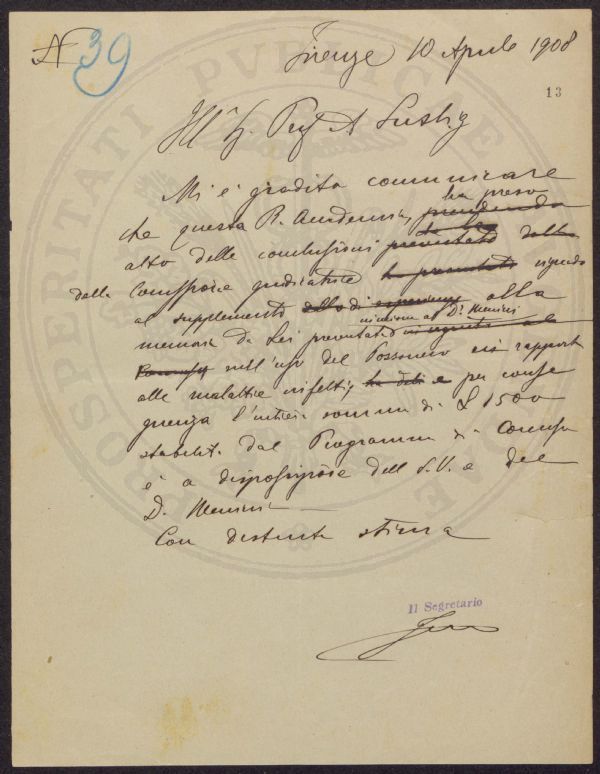 N 39
Firenze 10 Aprile 1908
13
Ill. S. Prof A Lustig
Mi è gradito comunicare
che questa R. Accademia, ha preso
atto delle conclusioni presentate dalla
dalla Commissione giudicatrice ha presentato riguardo
al supplemento alla
memoria da Lei presentato insieme al Dr. Nesini
sull'uso del Possesso in rapporti
alle malattie infettive, e per conse
guenza l'intera somma di £ 1500
stabilita dal Programma di Concorso
è a disposizione dell S.V. e del
D.
Con distinta stima
Il Segretario
PROSPERITATI PVBLICAE